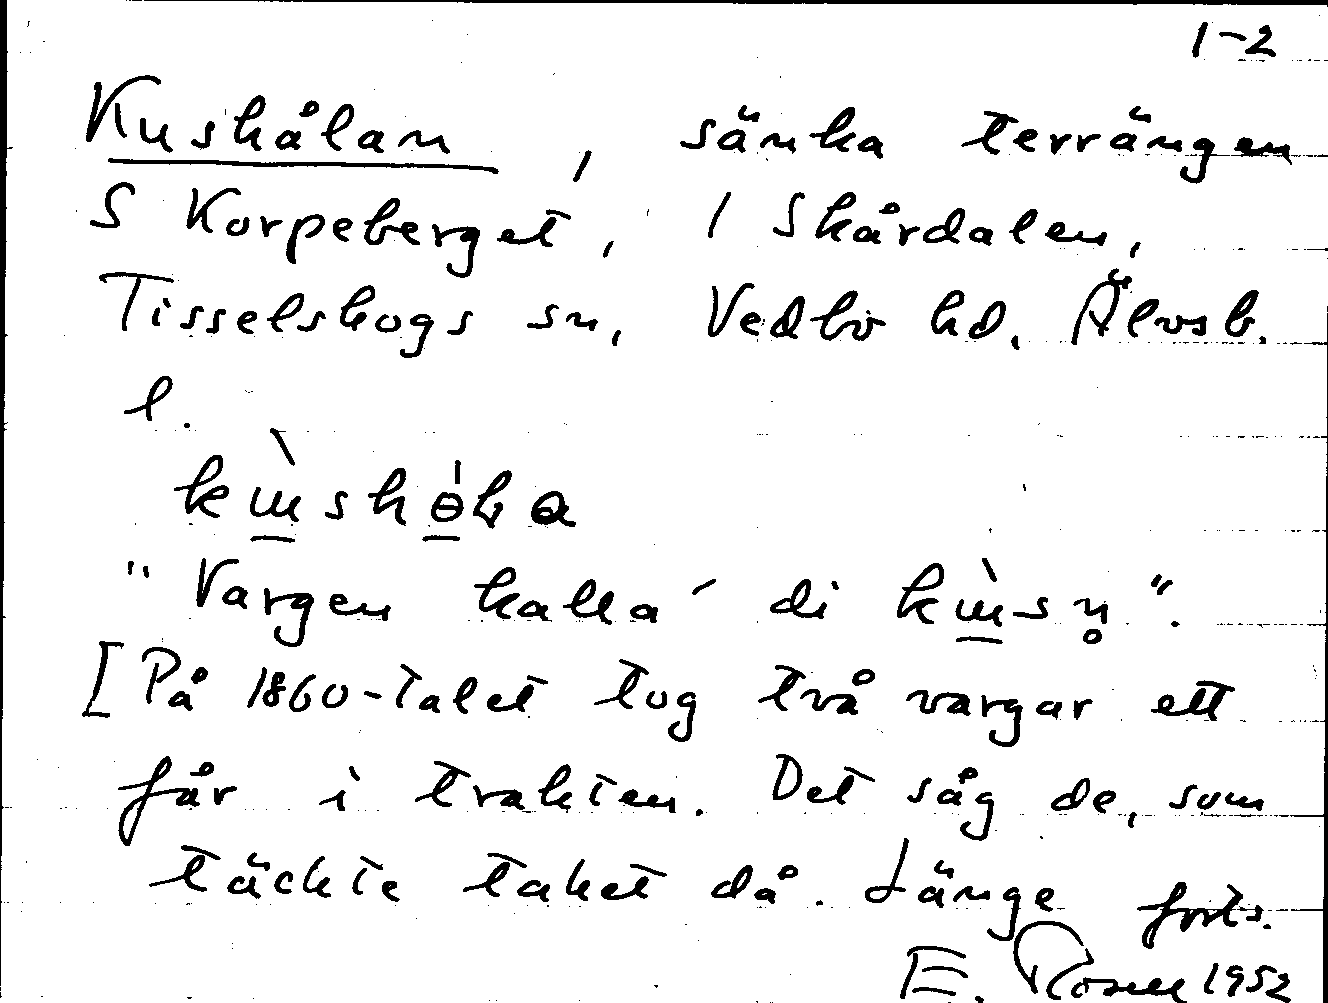 1-2
Kuskålan, sänka terrängen
S Korpeberget, 1 Skårdalen,
Tisselskogs sn, Vedbo hd. Älvsb.
l.
"Vargen kalla' di
[På 1860-talet tog två vargar ett
får i trakten. Det såg de, som
täckte taket då. Länge forts.
E. Rosell 1952